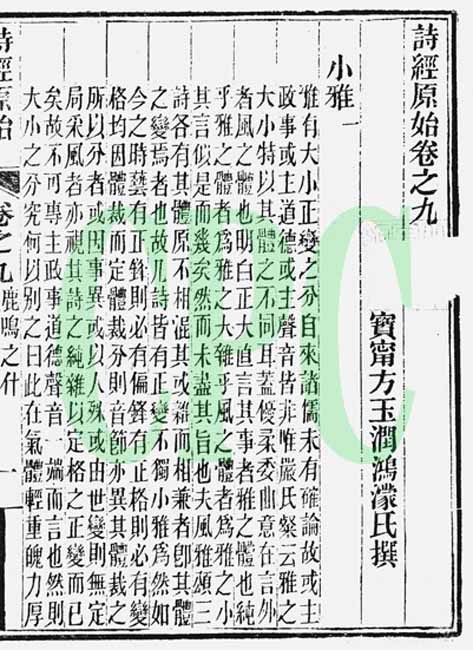 詩經原始卷之九
寶甯方玉潤鴻濛氏撰
小雅一
雅有大小正變之分自來諸儒未有確論故或主
政事或主道德或主聲音皆非唯嚴氏粲云雅之
大小特以其體之不同耳蓋優柔委曲意在言外
者風之體也明白正大直言其事者雅之體也純
乎雅之體者爲雅之大雜乎風之體者爲雅之小
其言似是而幾矣然而未盡其旨也夫風雅頌三
詩各有其體原不相混其或雜而相兼者卽其體
之變焉者也故凡詩皆有正變不獨小雅爲然如
今之時藝有正鋒則必有偏鋒有正格則必有變
格均因體裁而定體裁分則音節亦異其體裁之
所以分者或因事異或以人殊或由世變則無定
局采風者亦視其詩之純雜以定格之正變而已
矣故不可專主政事道德聲音一端而言也然則
大小之分究何以別之曰此在氣體輕重魄力厚
詩經原始 卷之九 鹿鳴之什 一
CPC